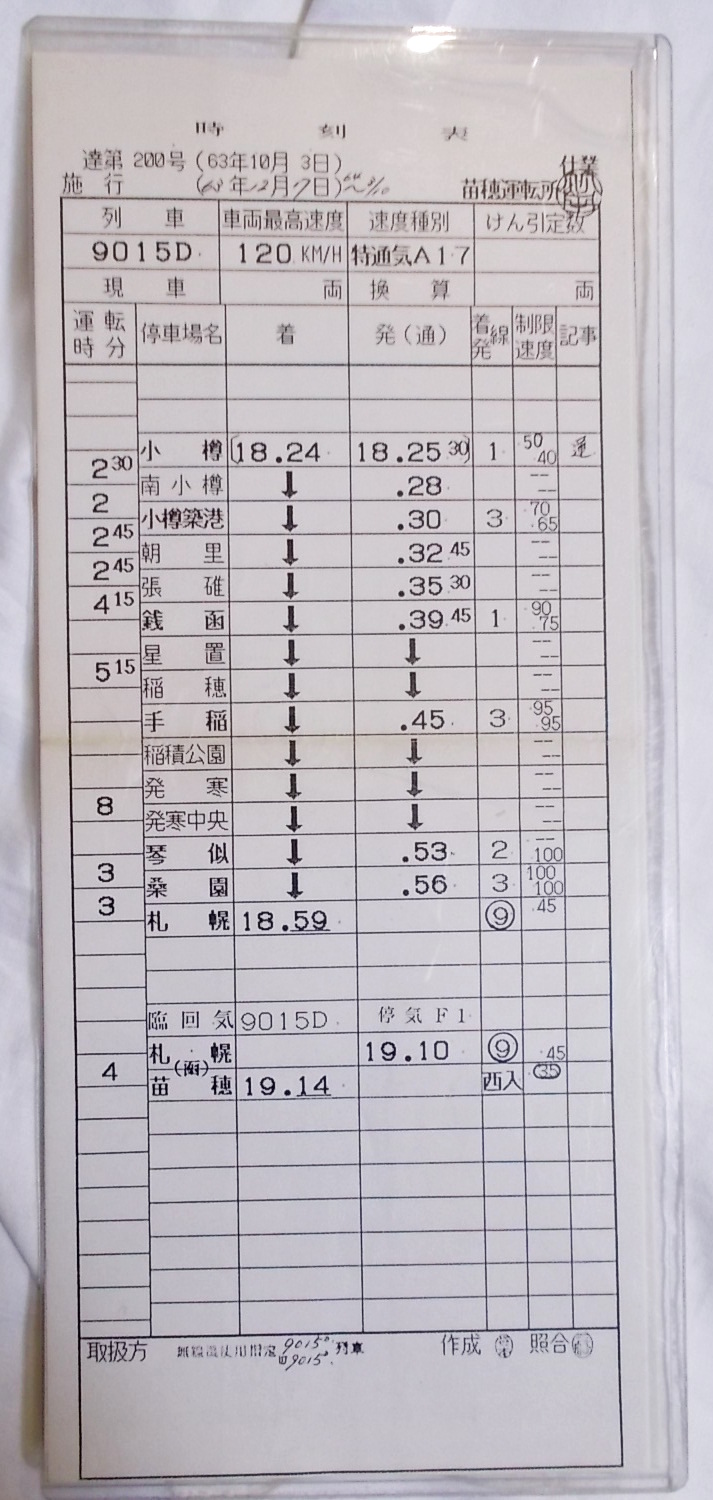 時刻表
達第 200号 (63年10月 3日)
仕業
施行 (63年12月17日)
苗穂運転所
列車 車両最高速度 速度種別 けん引定数
9015D 120 KM/H 特通気A17
現車 両 換算 両
運転時分 停車場名 着 発(通) 着発線 制限速度 記事
小樽 (18.24 18.25 30) 1 50 40
2 30
南小樽 ↓ .28 -- --
2
小樽築港 ↓ .30 3 70 65
2 45
朝里 ↓ .32 45 -- --
2 45
張碓 ↓ .35 30 -- --
4 15
銭函 ↓ .39 45 1 90 75
星置 ↓ ↓ -- --
5 15
稲穂 ↓ ↓ -- --
手稲 ↓ .45 3 95 95
稲積公園 ↓ ↓ -- --
発寒 ↓ ↓ -- --
8
発寒中央 ↓ ↓ -- --
琴似 ↓ .53 2 -- 100
3
桑園 ↓ .56 3 100 100
3
札幌 18.59 ⑨ 45
臨回気 9015D 停気F1
札幌 19.10 ⑨ 45
4
苗穂 19.14 西入 35
取扱方 9015D 回9015D 列車 作成 照合